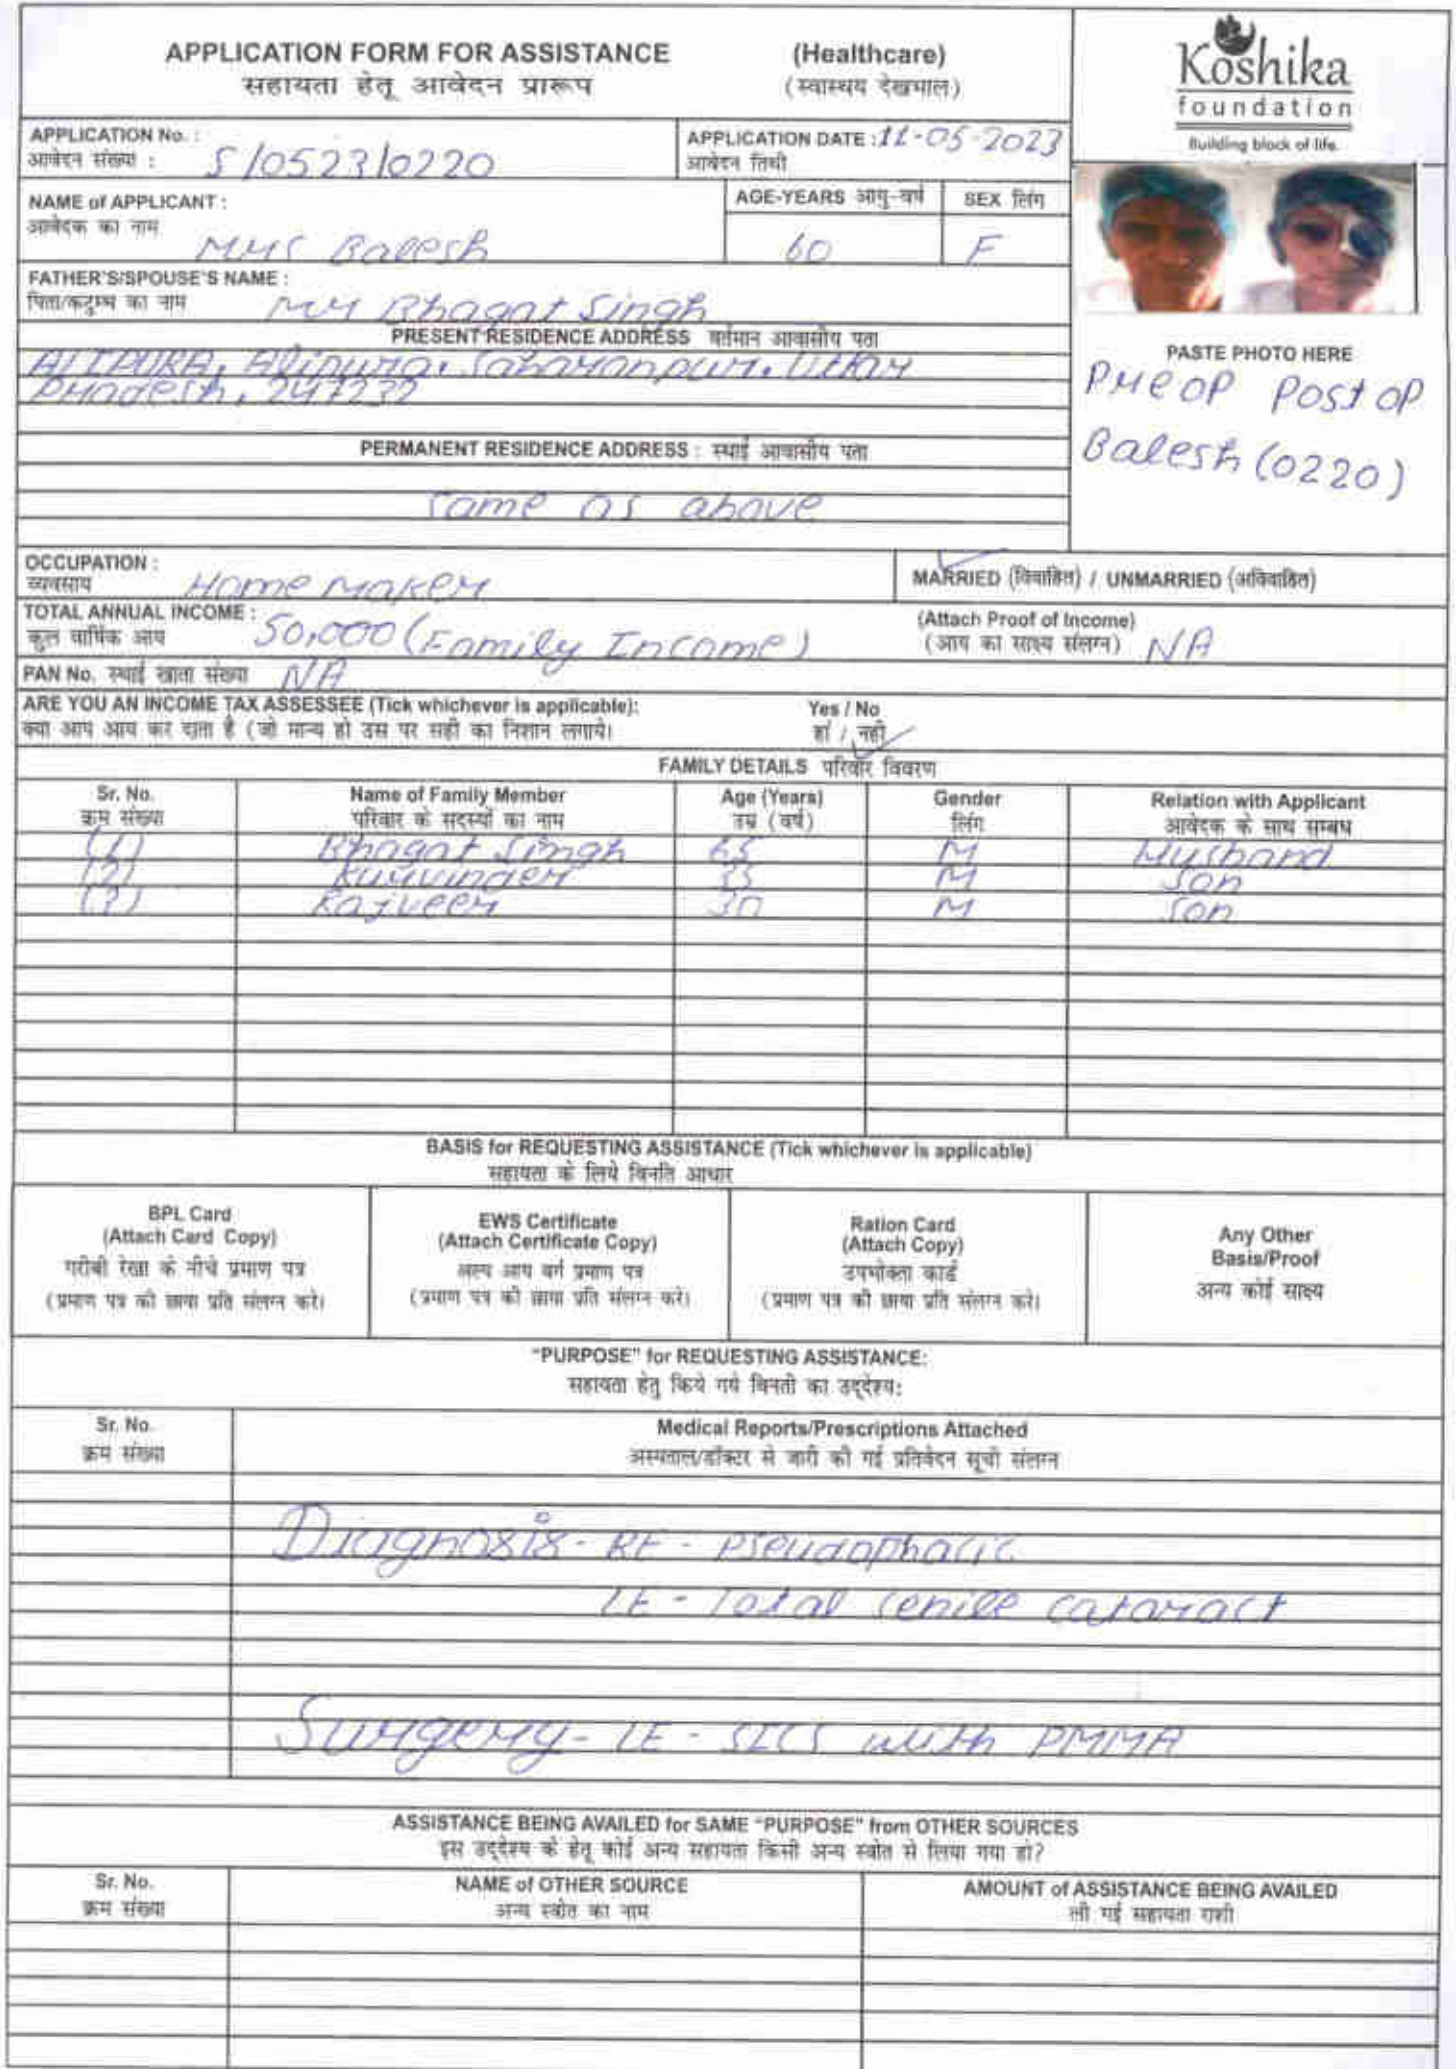 APPLICATION FORM FOR ASSISTANCE (Healthcare)
सहायता हेतू आवेदन प्रारूप (स्वास्थय देखभाल)
Koshika
foundation
Building block of life.
APPLICATION No. :
आवेदन संख्या : S/0523/0220
APPLICATION DATE : 11-05-2023
आवेदन तिथी
NAME of APPLICANT :
आवेदक का नाम
Mrs Balesh
AGE-YEARS आयु-वर्ष
60
SEX लिंग
F
FATHER'S/SPOUSE'S NAME :
पिता/कटुम्ब का नाम Mr Bhagat Singh
PRESENT RESIDENCE ADDRESS वर्तमान आवासीय पता
Alipura, Saharanpur, Uttar
Pradesh, 247232
PASTE PHOTO HERE
Preop Post op
Balesh (0220)
PERMANENT RESIDENCE ADDRESS : स्थाई आवासीय पता
same as above
OCCUPATION :
व्यवसाय Home maker
MARRIED (विवाहित) / UNMARRIED (अविवाहित)
TOTAL ANNUAL INCOME :
कुल वार्षिक आय 50,000 (Family Income)
(Attach Proof of Income)
(आय का साक्ष्य संलग्न) NA
PAN No. स्थाई खाता संख्या NA
ARE YOU AN INCOME TAX ASSESSEE (Tick whichever is applicable): Yes / No
क्या आप आय कर दाता है (जो मान्य हो उस पर सही का निशान लगाये। हाँ / नही
FAMILY DETAILS परिवार विवरण
Sr. No. Name of Family Member Age (Years) Gender Relation with Applicant
क्रम संख्या परिवार के सदस्यों का नाम उम्र (वर्ष) लिंग आवेदक के साथ सम्बध
(1) Bhagat Singh 65 M Husband
(2) Kulvinder 35 M Son
(3) Rajveer 30 M Son
BASIS for REQUESTING ASSISTANCE (Tick whichever is applicable)
सहायता के लिये विनति आधार
BPL Card
(Attach Card Copy)
गरीबी रेखा के नीचे प्रमाण पत्र
(प्रमाण पत्र की छाया प्रति संलग्न करे।
EWS Certificate
(Attach Certificate Copy)
अल्प आय वर्ग प्रमाण पत्र
(प्रमाण पत्र की छाया प्रति संलग्न करे।
Ration Card
(Attach Copy)
उपभोक्ता कार्ड
(प्रमाण पत्र की छाया प्रति संलग्न करे।
Any Other
Basis/Proof
अन्य कोई साक्ष्य
"PURPOSE" for REQUESTING ASSISTANCE:
सहायता हेतु किये गये विनती का उद्देश्य:
Sr. No. Medical Reports/Prescriptions Attached
क्रम संख्या अस्पताल/डॉक्टर से जारी की गई प्रतिवेदन सूची संलग्न
Diagnosis - RE - Pseudophacic
LE - Total senile cataract
Surgery - LE - SICS with PMMA
ASSISTANCE BEING AVAILED for SAME "PURPOSE" from OTHER SOURCES
इस उद्देश्य के हेतू कोई अन्य सहायता किसी अन्य स्त्रोत से लिया गया हो?
Sr. No. NAME of OTHER SOURCE AMOUNT of ASSISTANCE BEING AVAILED
क्रम संख्या अन्य स्त्रोत का नाम ली गई सहायता राशी